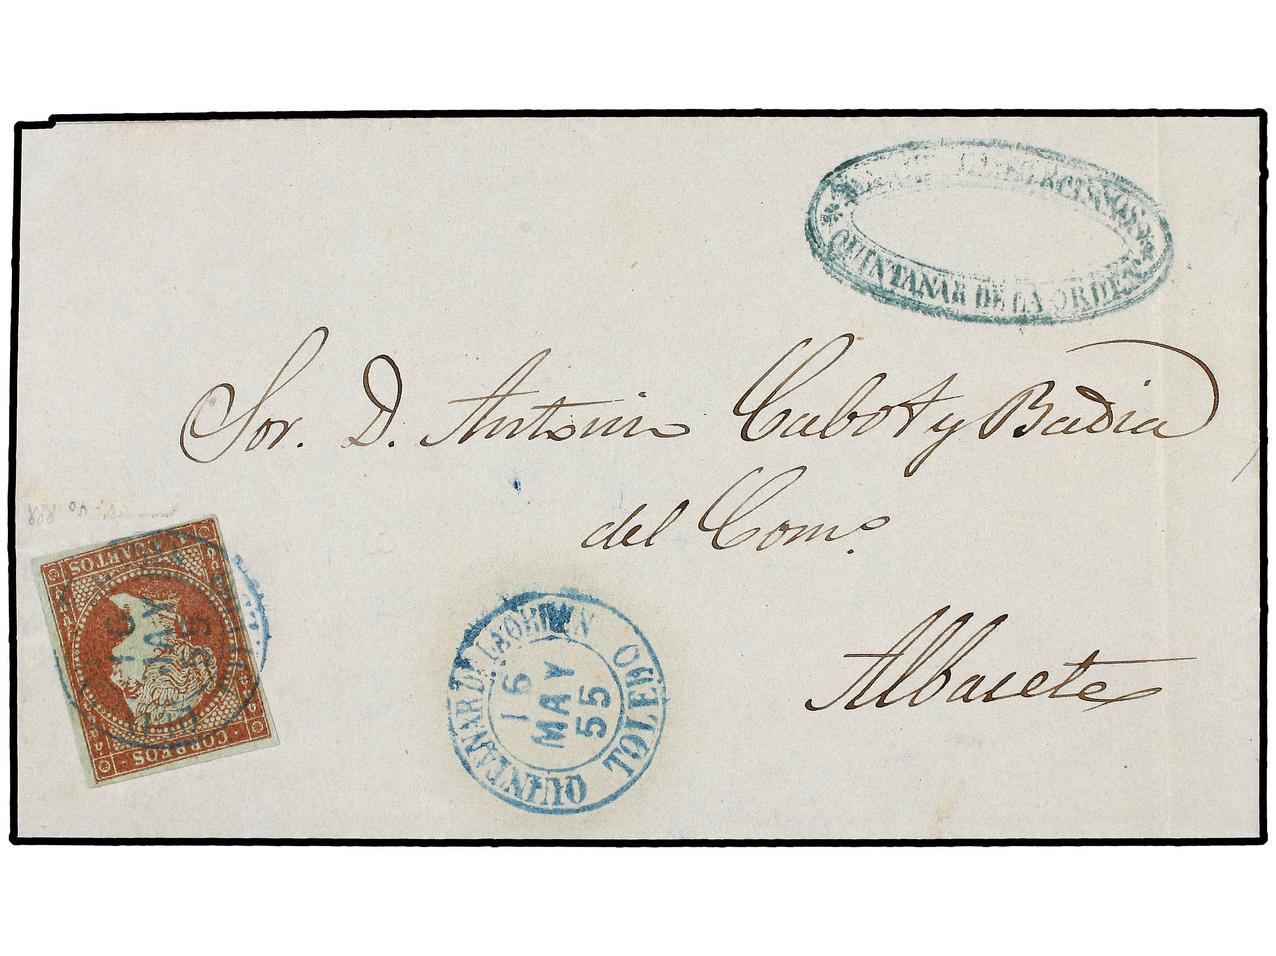 QUINTANAR DE LA ORDEN
Sor. D. Antonio Cabot y Badia
del Como.
Albacete
CUARTOS
16
MAY
55
CORREOS
QUINTANAR D. LA ORDEN
TOLEDO
16
MAY
55